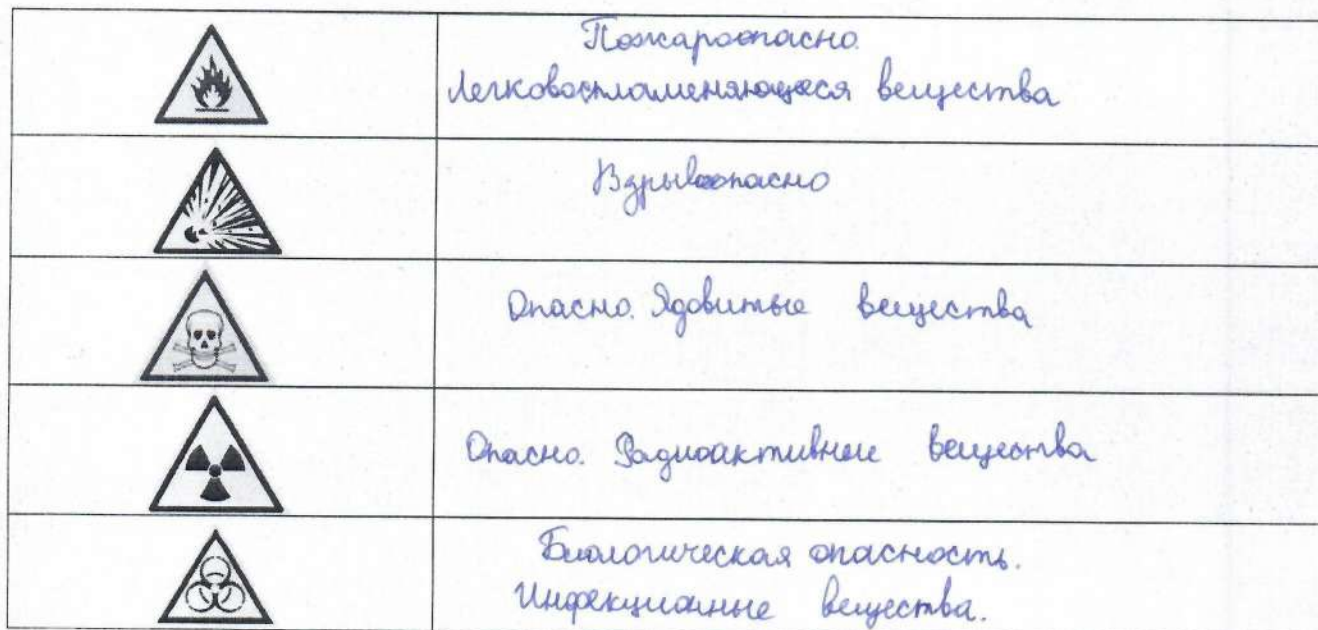 Пожароопасно.
Легковоспламеняющееся вещества
Взрывоопасно
Опасно. Ядовитые вещества
Опасно. Радиоактивные вещества
Биологическая опасность.
Инфекционные вещества.